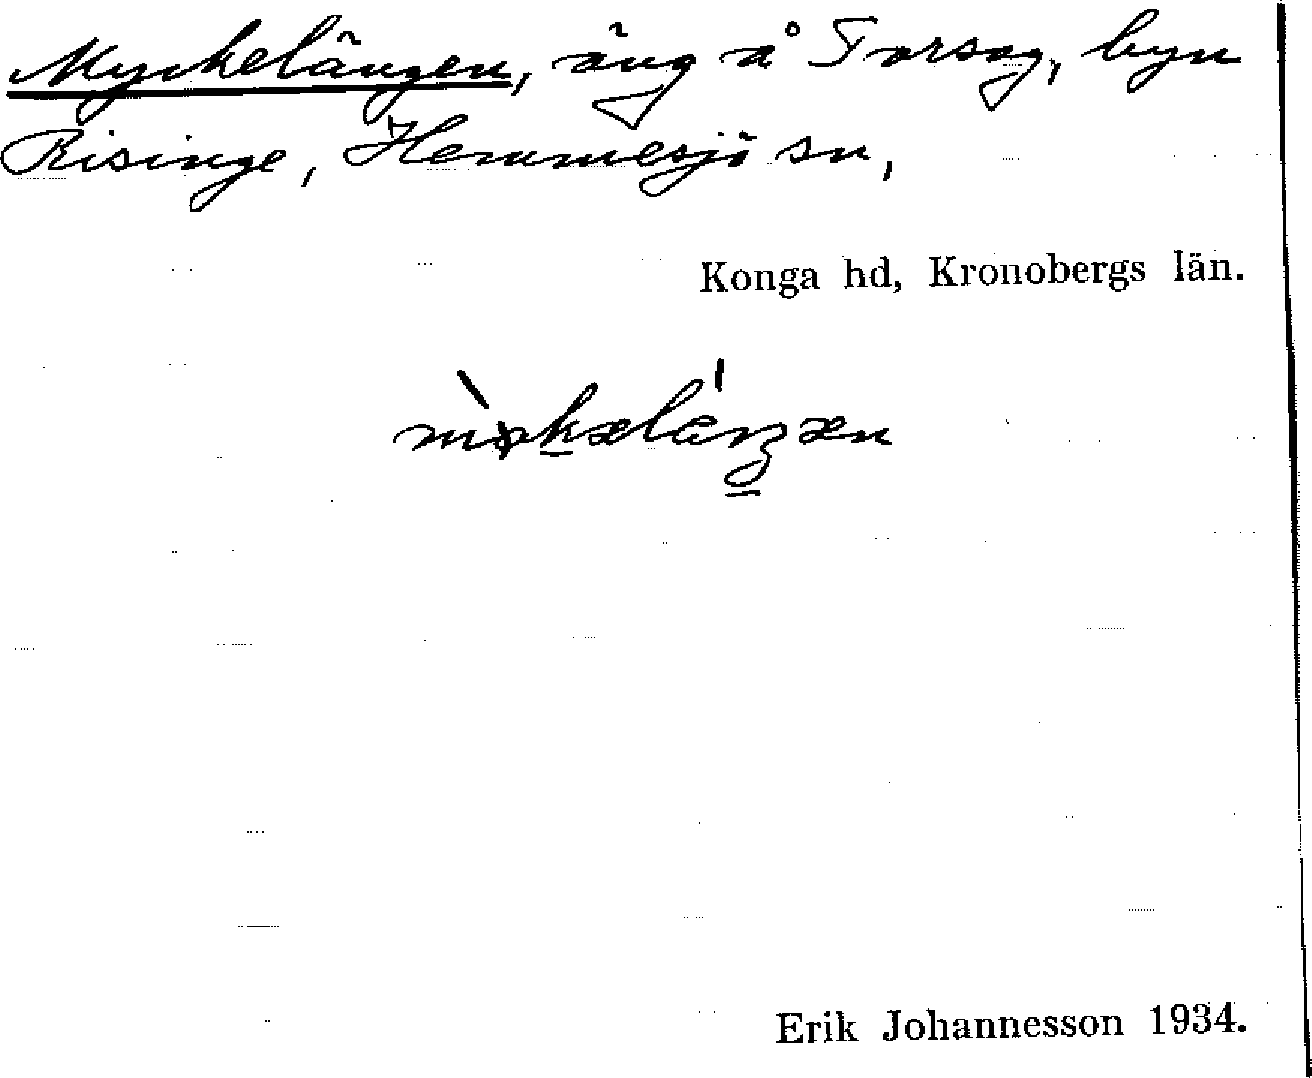 Myckelängen, äng å Torsag, byn
Risinge, Hemmesjö sn,
Konga hd, Kronobergs län.
Erik Johannesson 1934.